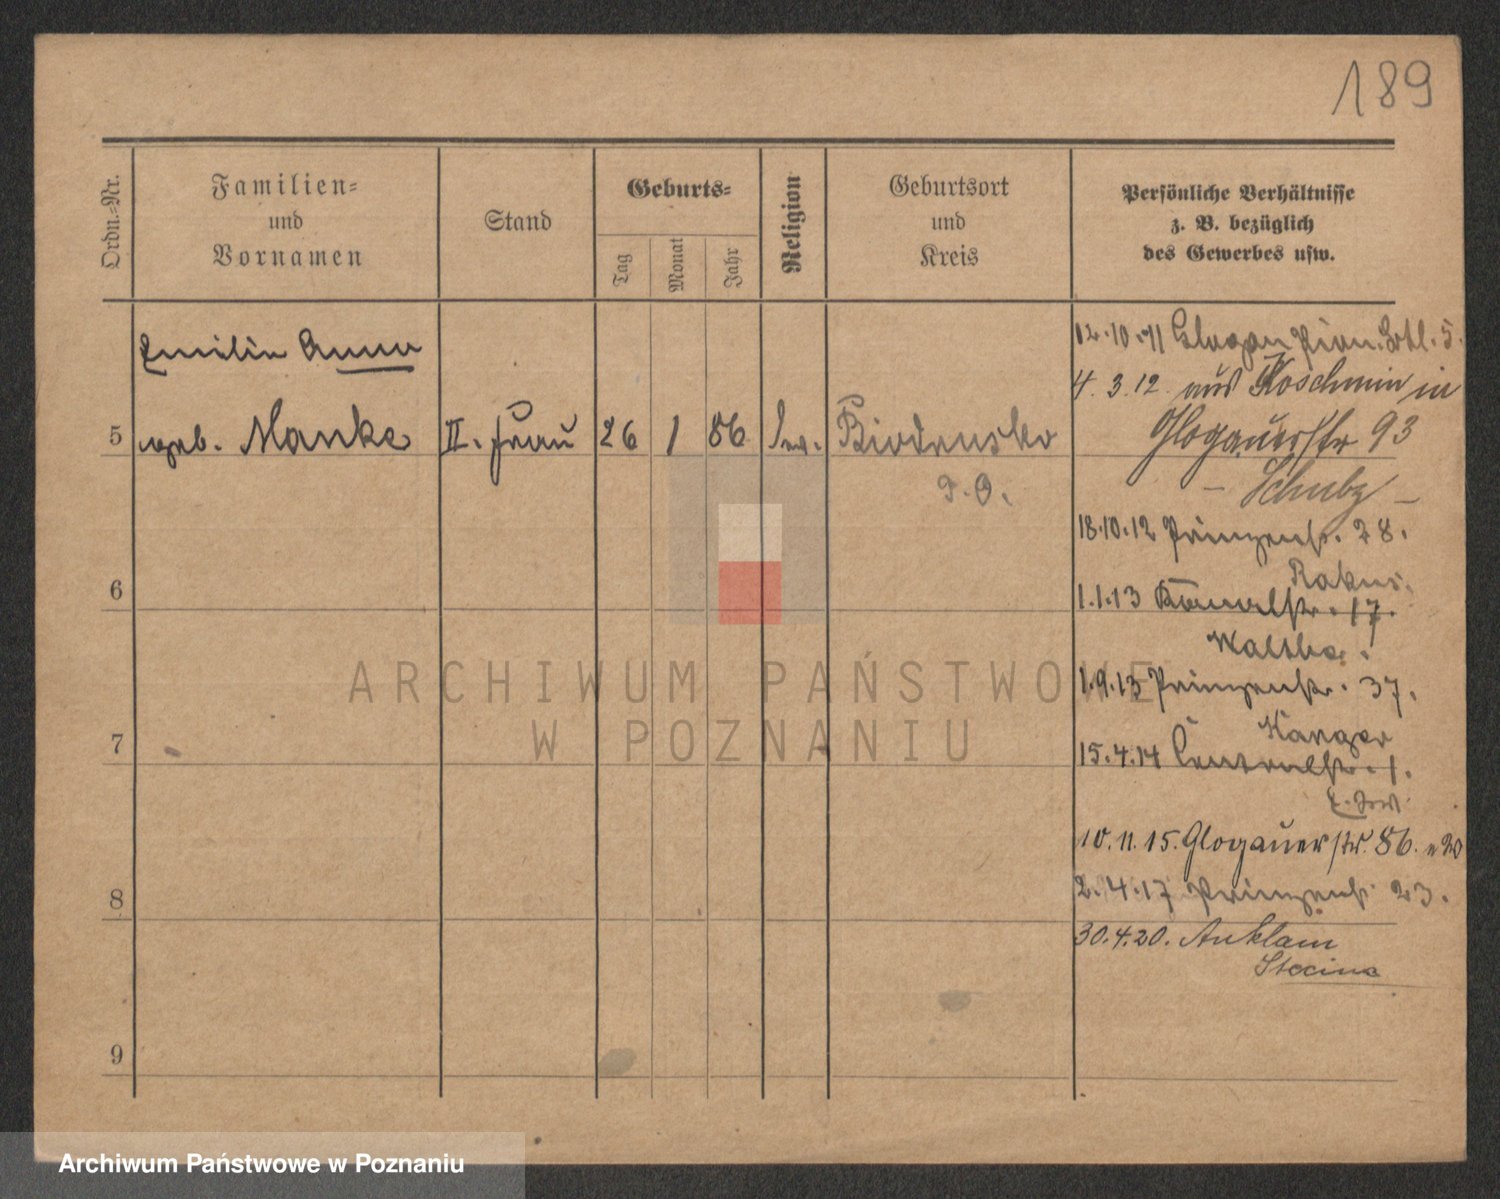 189
Ordn.-Nr.
Familien-
und
Vornamen
Stand
Geburts-
Tag
Monat
Jahr
Religion
Geburtsort
und
Kreis
Persönliche Verhältnisse
z. B. bezüglich
des Gewerbes usw.
Emilie Anna
5 geb. Manke II. Frau 26 1 86 ev.
P. O.
12.10.11 Glogau
4.3.12 aus Koschmin in
Glogauerstr 93
– Schulz –
18.10.12 Prinzenstr. 28.
6
1.1.13 Kanalstr. 17.
1.9.13 Prinzenstr. 37.
7
15.4.14 Centralstr. 1.
10.11.15. Glogauerstr. 86.
8
2.4.17 Prinzenstr 23.
30.4.20. Anklam
9
ARCHIWUM PAŃSTWOWE
W POZNANIU
Archiwum Państwowe w Poznaniu